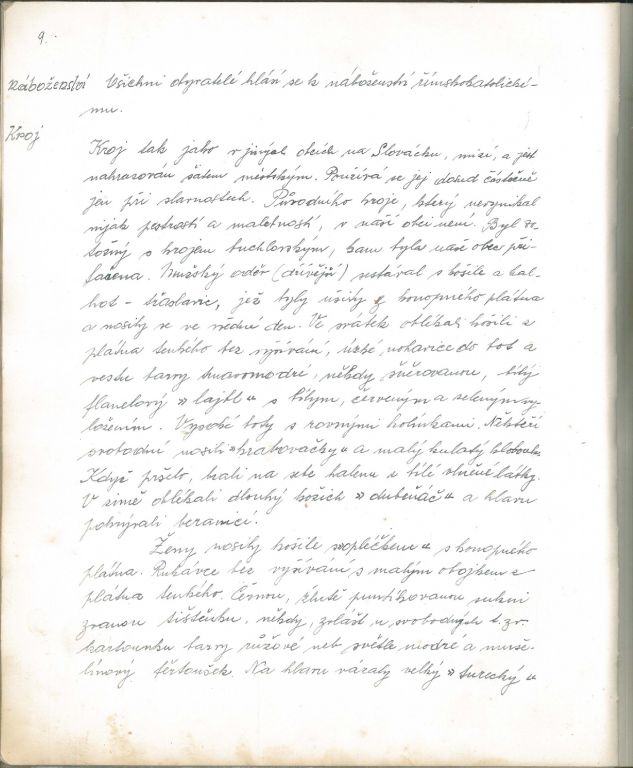 9.
Náboženství Všichni obyvatelé hlásí se k náboženství římskokatolické-
mu.
Kroj
Kroj tak jako v jiných obcích na Slovácku, mizí, a jest
nahrazován šatem městským. Používá se jej dosud částečně
jen při slavnostech. Původního kroje, který nevynikal
nijak pestrostí a malebností, v naší obci není. Byl to-
tožný s krojem buchlovským, kam byla naše obec při-
řazena. Mužský oděv (dřívější) sestával s košile a kal-
hot - třaslavic, jež byly ušity z konopného plátna
a nosily se ve všední den. Ve svátek oblékali košili z
plátna tenkého bez vyšívání, úzké nohavice do bot a
vestu barvy tmavomodré, někdy šněrovanou, bílý
flanelový "lajbl" s bílým, červeným a zeleným vy-
ložením. Vysoké boty s rovnými holínkami. Někteří
svobodní nosili "hrabovačky" a malý kulatý klobouk.
Když pršelo, brali na sebe halenu z bílé vlněné látky.
V zimě oblékali dlouhý kožich "dubeňáč" a hlavu
pokrývali beranicí.
Ženy nosily košile "opléčkem" s konopného
plátna. Rukávce bez vyšívání s malým obojkem z
plátna tenkého. Černou, žlutě puntíkovanou sukni
zvanou tištěnku, někdy, zvlášť u svobodných t. zv.
kartounku barvy růžové neb světle modré a muše-
línový fěrtoušek. Na hlavu vázaly velký "turecký"